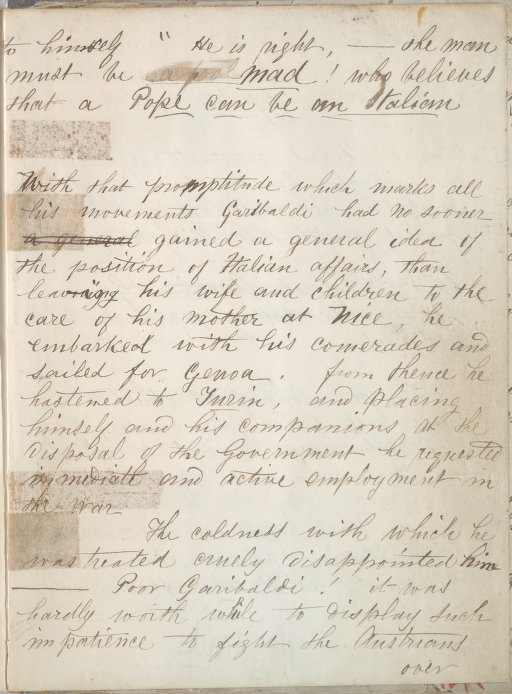 to himself " He is right, — the man
must be mad! who believes
that a Pope can be an Italian
With that promptitude which marks all
his movements Garibaldi had no sooner
a general gained a general idea of
the position of Italian affairs, than
leaving his wife and children to the
care of his mother at Nice he
embarked with his comerades and
sailed for Genoa. from thence he
hastened to Turin, and placing
himself and his companions at the
disposal of the Government he requested
immediate and active employment in
the war
The coldness with which he
was treated cruely disappointed him
— Poor Garibaldi! it was
hardly worth while to display such
impatience to fight the Austrians
over